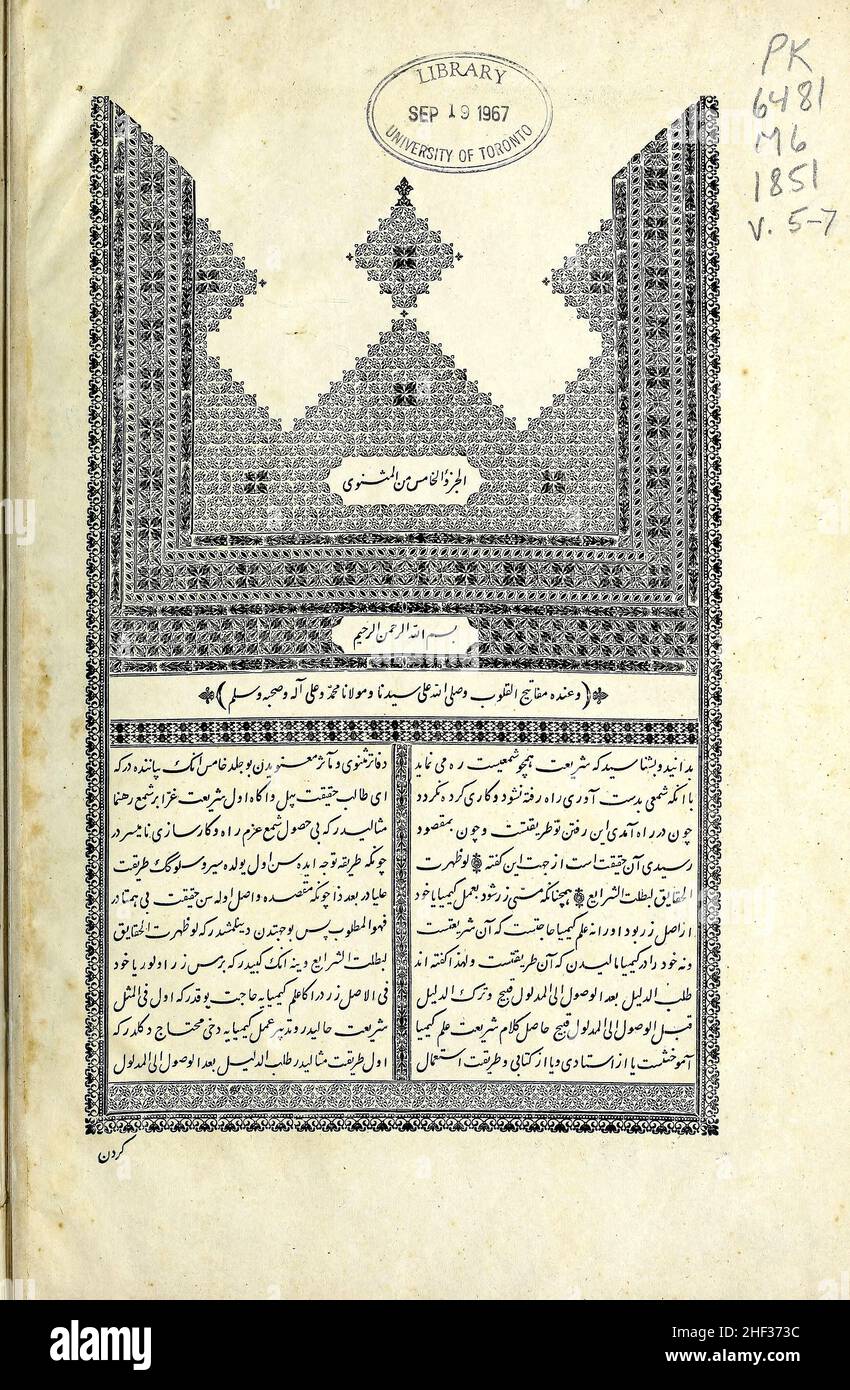 LIBRARY
SEP 19 1967
UNIVERSITY OF TORONTO
PK
6481
M6
1851
v. 5-7
الجزء الخامس من المثنوى
بسم الله الرحمن الرحيم
(وعنده مفاتيح القلوب وصلى الله على سيدنا ومولانا محمد وعلى آله وصحبه وسلم)
بدانيد وبشناسيد كه شريعت همچو شمعيست ره مى نمايد
با انكه شمعى بدست آورى راه رفته نشود وكارى كرده نكردد
چون در راه آمدى اين رفتن تو طريقتست وچون بمقصود
رسيدى آن حقيقت است از جهت اين كفته لو ظهرت
الحقايق لبطلت الشرايع همچنانكه مسى زر شود بعمل كيميا يا خود
از اصل زر بود اورا نه علم كيميا حاجتست كه آن شريعتست
ونه خود را در كيميا ماليدن كه آن طريقتست ولهذا كفته اند
طلب الدليل بعد الوصول الى المدلول قبيح وترك الدليل
قبل الوصول الى المدلول قبيح حاصل كلام شريعت علم كيميا
آموختنست يا از استادى ويا از كتابى وطريقت استعمال
دفاتر مثنوى ومآثر معنويدن بو جلد خامس انك بياننده دركه
اى طالب حقيقت بيل واكاه اول شريعت غرا بر شمع رهنما
مثاليدركه بى حصول شمع عزم راه وكارسازى ناميسردر
چونكه طريقه توجه ايده سن اول يولده سير وسلوكك طريقت
عليادر بعد ذا چونكه مقصده واصل اوله سن حقيقت بى همتادر
فهو المطلوب پس بو جهتدن ديمشلردركه لو ظهرت الحقايق
لبطلت الشرايع دينه انك كبيدركه برمس زر اولور يا خود
فى الاصل زردر اكا علم كيميايه حاجت يوقدركه اول فى المثل
شريعت حاليدر وتدبير عمل كيميايه دخى محتاج دكلدركه
اول طريقت مثاليدر طلب الدليل بعد الوصول الى المدلول
كردن
alamy
Image ID: 2HF373C
www.alamy.com